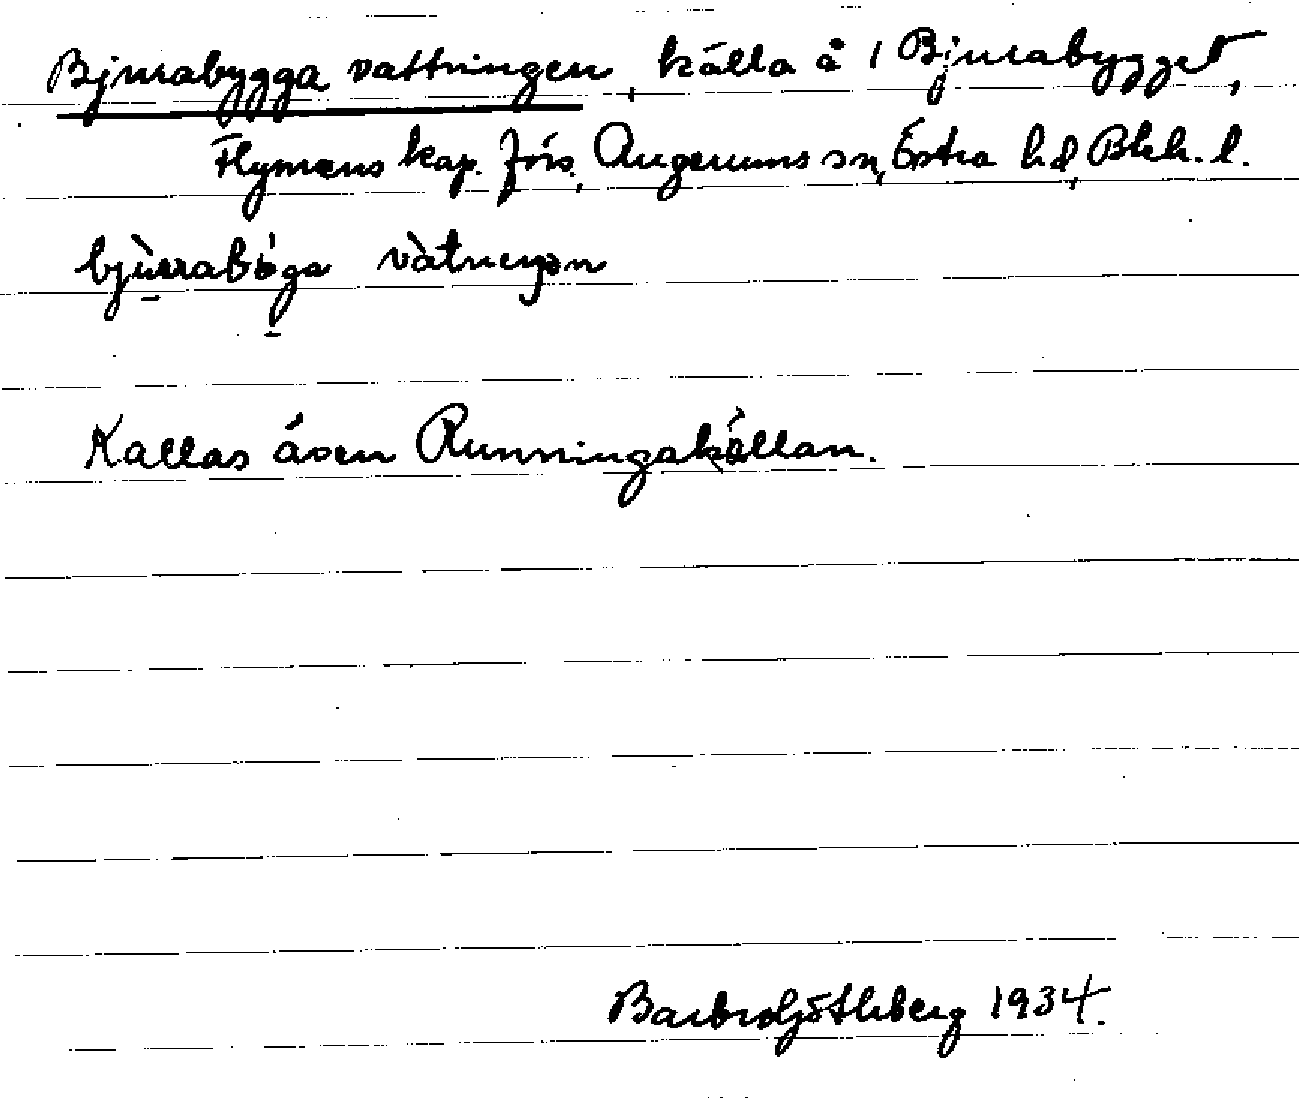 Bjurabygga vattningen, källa å 1 Bjurabygget,
Flymens kap. förs., Augerums sn, Östra hd, Blek. l.
Kallas även Runningakällan.
Barbro Götleberg 1934.